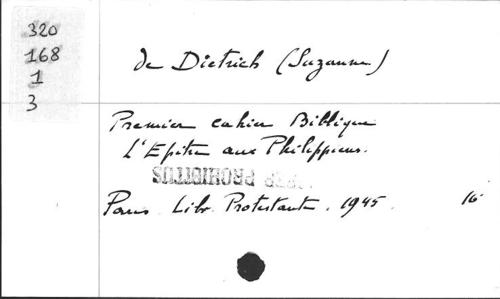 320
168
1
3
de Dietrich (Suzanne)
Premier cahier Biblique
L'Epitre aux Philippiens.
PROHIBITUS
Paris. Libr. Protestante. 1945. 16